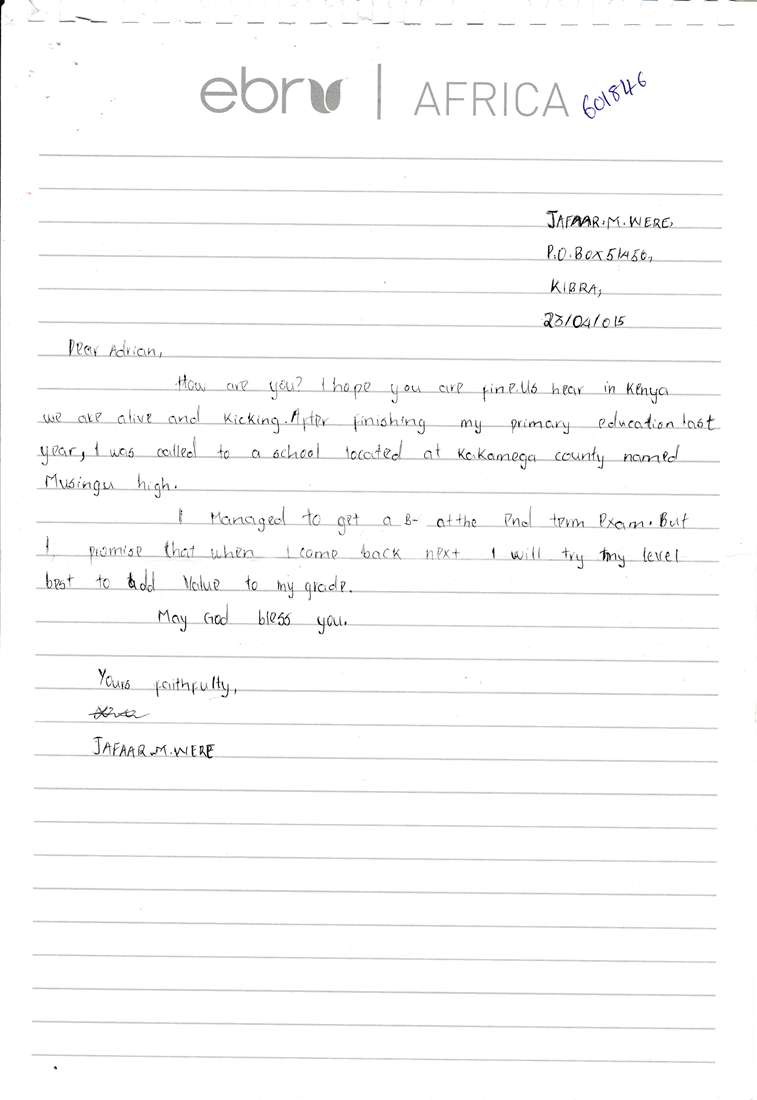 ebru | AFRICA 601846
JAFAAR.M.WERE,
P.O.BOX 51456,
KIBRA,
23/04/015
Dear Adrian,
How are you? I hope you are fine.Us hear in Kenya
we are alive and kicking.After finishing my primary education last
year, I was called to a school located at Kakamega county named
Musingu high.
I Managed to get a B- at the end term exam. But
I promise that when I come back next I will try my level
best to add value to my grade.
May God bless you.
Yours faithfully,
JAFAAR.M.WERE